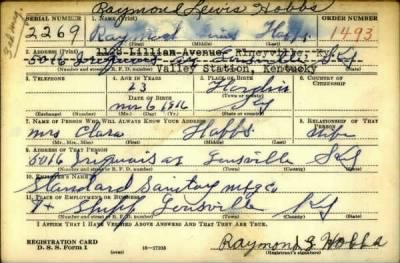 Raymond Lewis Hobbs
SERIAL NUMBER 1. NAME (Print) ORDER NUMBER
2269 Raymond Lewis Hobbs 1493
1128 Lillian Avenue,
2. ADDRESS (Print)
5016 Iroquois av Louisville Ky
Valley Station, Kentucky
3. TELEPHONE 4. AGE IN YEARS 5. PLACE OF BIRTH 6. COUNTRY OF CITIZENSHIP
23 Hardin
DATE OF BIRTH
Nov 6 1916 Ky
7. NAME OF PERSON WHO WILL ALWAYS KNOW YOUR ADDRESS 8. RELATIONSHIP OF THAT PERSON
Mrs Clara Hobbs Wife
(Mr., Mrs., Miss) (First) (Middle) (Last)
9. ADDRESS OF THAT PERSON
5016 Iroquois av Louisville Ky
(Number and street or R. F. D. number) (Town) (County) (State)
10. EMPLOYER'S NAME
Standard Sanitary Mfg Co
11. PLACE OF EMPLOYMENT OR BUSINESS
7th Shipp Louisville Ky
(Number and street or R. F. D. number) (Town) (County) (State)
I AFFIRM THAT I HAVE VERIFIED ABOVE ANSWERS AND THAT THEY ARE TRUE.
REGISTRATION CARD
D. S. S. Form 1 (over) 16—17105 Raymond L Hobbs
(Registrant's signature)